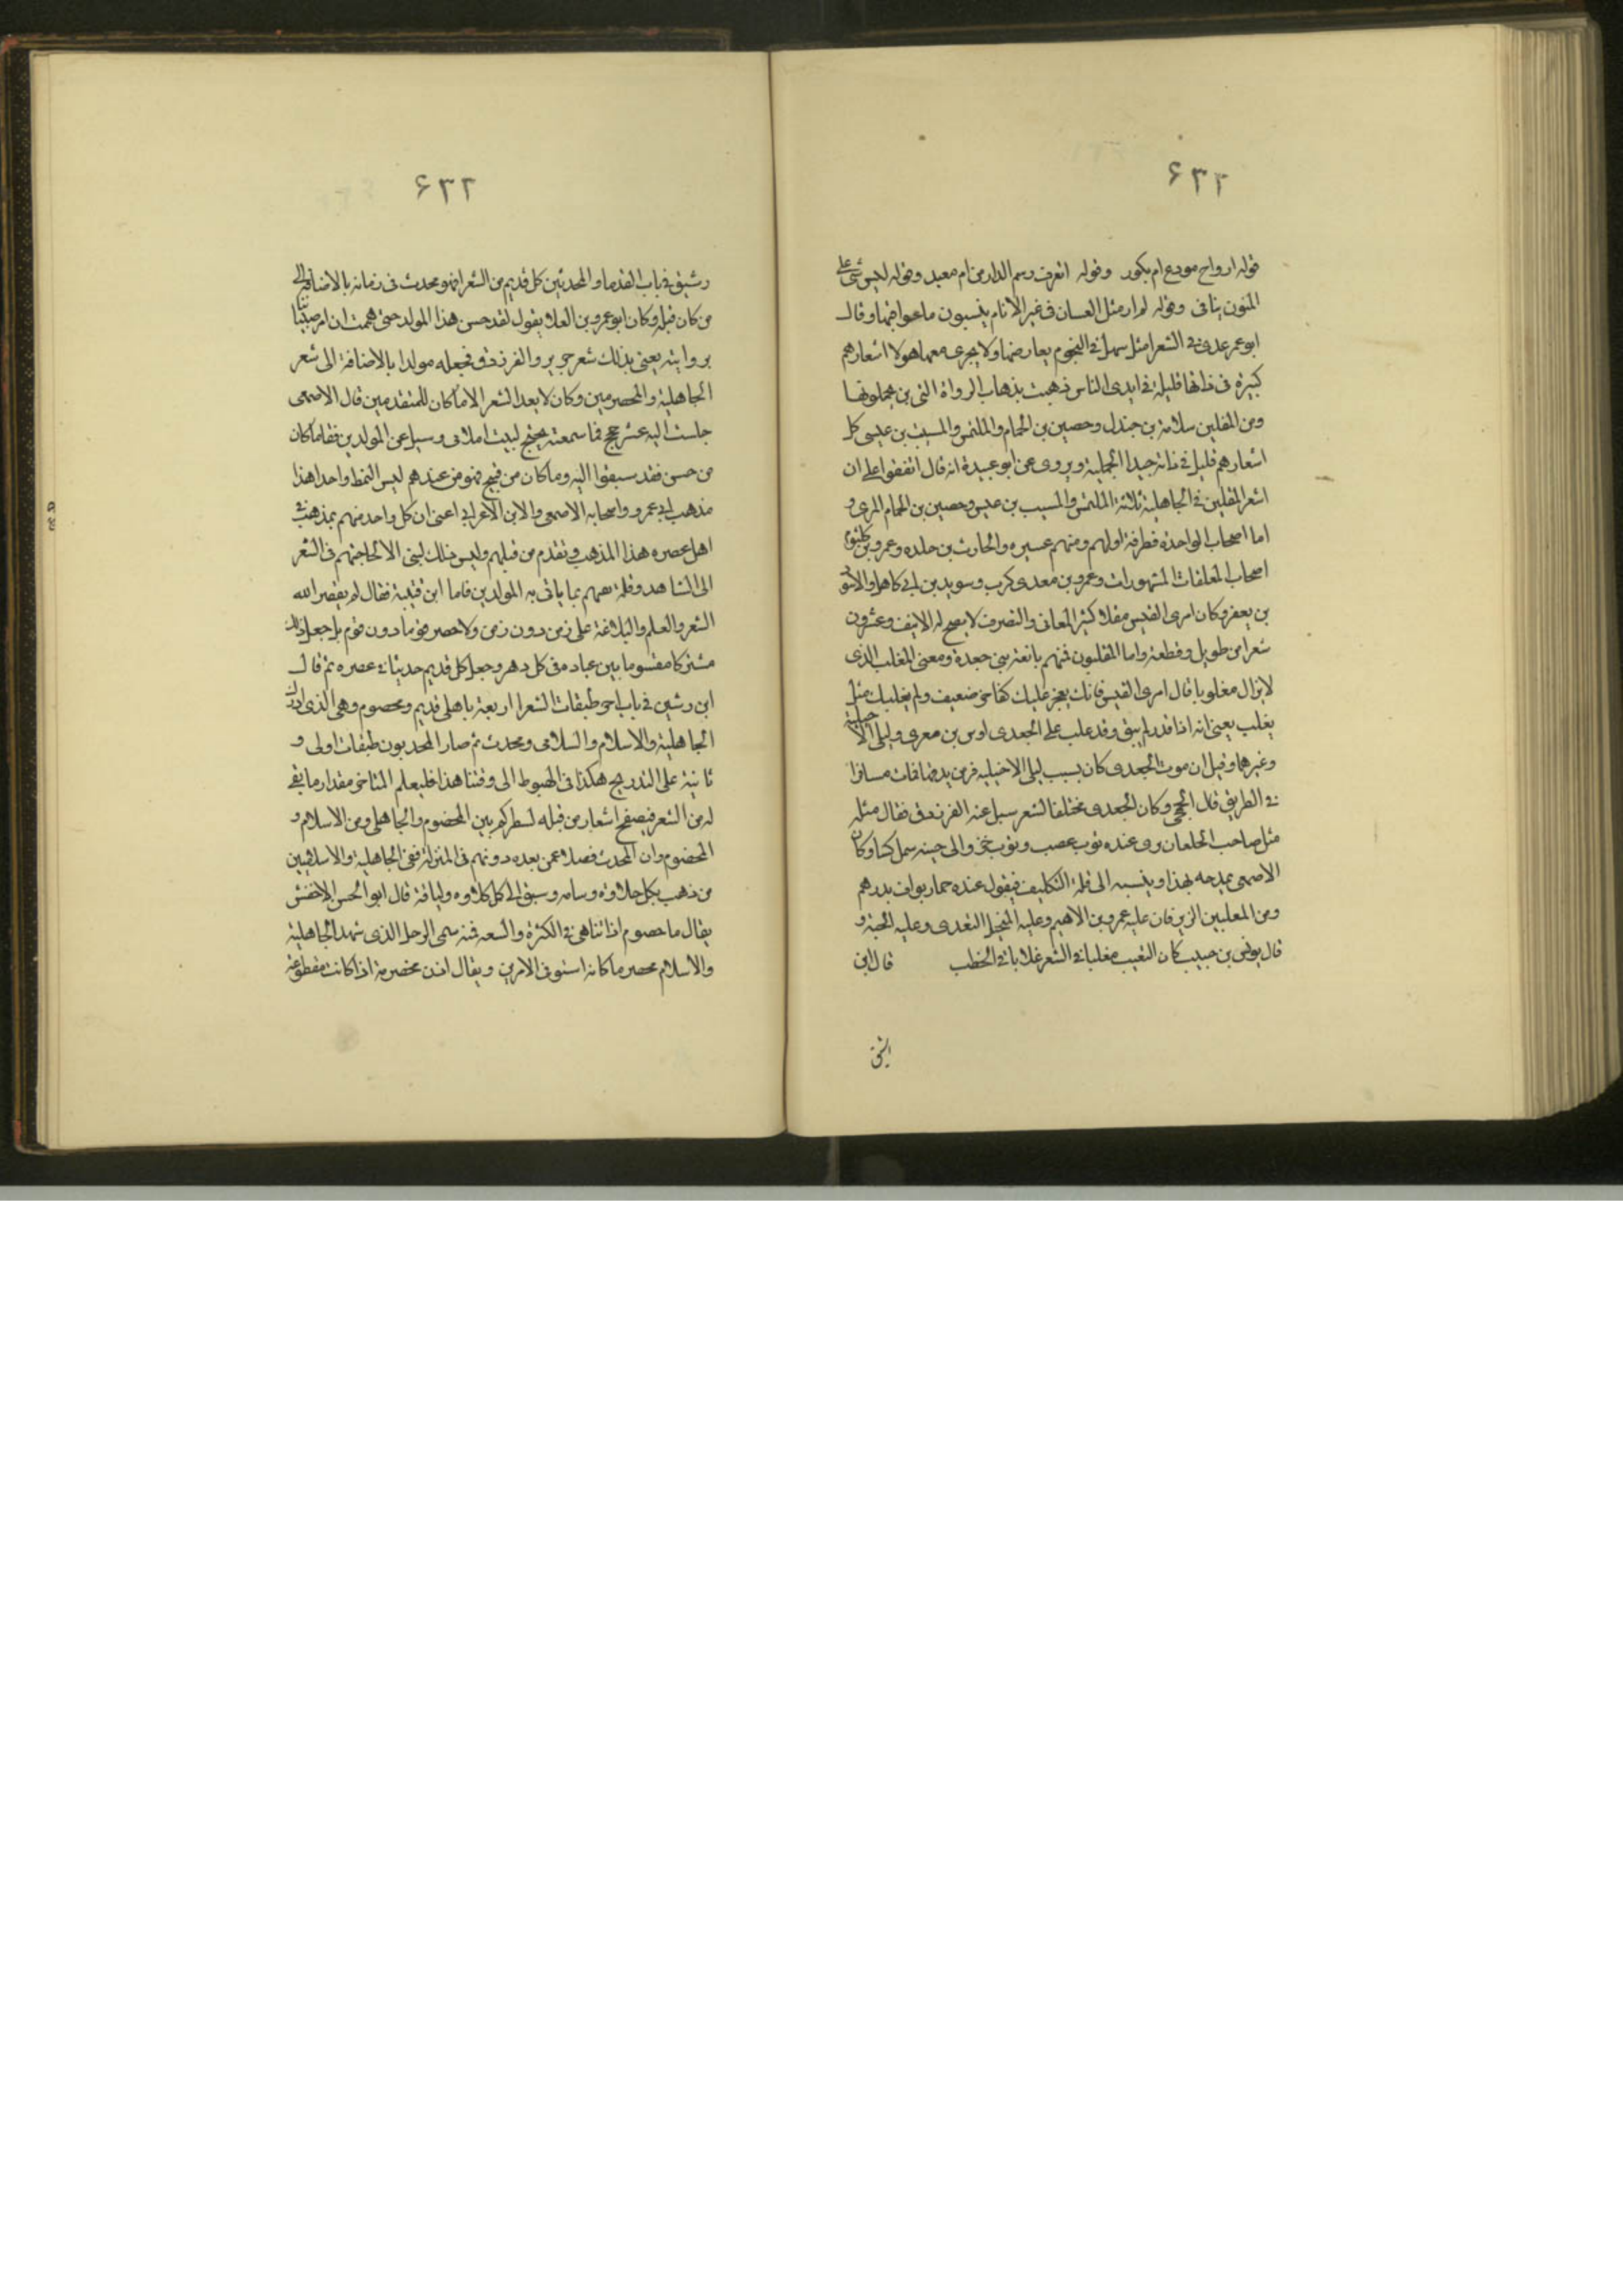 ۶۳۲
قوله ارواح مودع ام بكور وقوله اتعرف رسم الدار من ام معبد وقوله ليس شئ على
المنون بباقى وقوله لم ار مثل الفتيان فى غير الايام ينسبون ما عواقبها وقال
ابو عمر عدى فى الشعرا مثل سهيل فى النجوم يعارضها ولا يجرى معها هولا اشعارهم
كثيرة فى ذاتها قليلة فى ايدى الناس ذهبت بذهاب الرواة الذين يحملونها
ومن المقلين سلامة بن جندل وحصين بن الحمام والمتلمس والمسيب بن عيسى كل
اشعارهم قليل فى ذاته جيدا الجملية ويروى عن ابو عبيدة انه قال اتفقوا على ان
اشعر المقلين فى الجاهلية ثلاثة المتلمس والمسيب بن عيس وحصين بن الحمام المرى و
اما اصحاب الواحدة فطرفة اولهم ومنهم عنتره والحارث بن حلده وعمرو بن كلثوم
اصحاب المعلقات المشهورات وعمرو بن معدى كرب وسويد بن ابى كاهل والاسود
بن يعفر وكان امرى القيس مقلا كثير المعانى والتصرف لا يصح له الا نيف وعشرون
شعرا من طويل وقطعة واما المغلبون فمنهم نابغة بنى جعدة ومعنى المغلب الذى
لا يزال مغلوبا قال امرى القيس فانك يفجر عليك كفاخر ضعيف ولم يغلبك مثل
يغلب يعنى انه اذا قدر لم يبق وقد غلب على الجعدى اوس بن معرى وليلى الاخيلية
وغيرهما وقيل ان موت الجعدى كان بسبب ليلى الاخيلية فر من يدها فمات مسافرا
فى الطريق قال الجمحى وكان الجعدى مختلفا لشعر سيل عنه الفرزدق فقال مثله
مثل صاحب الخلعان يرى عنده ثوب عصب وثوب خز والى جنبه سمل كسا وكان
الاصمعى يمدحه بهذا وينسبه الى قلة التكليف فيقول عنده خمار بواف بدرهم
ومن المغلبين الزبرقان غلبه عمرو بن الاهيم وغلبه المخبل السعدى وغلبه الحبة و
قال يونس بن حبيب كان البعيث مغلبا فى الشعر غلابا فى الخطب قال ابن
رشيق
۶۳۲
رشيق فى باب القدما والمحدثين كل قديم من الشعرا فهو محدث فى زمانه بالاضافة الى
من كان قبله وكان ابو عمرو بن العلا يقول لقد حسن هذا المولد حتى هممت ان امر صبياننا
بروايته يعنى بذلك شعر جرير والفرزدق فجعله مولدا بالاضافة الى شعر
الجاهلية والمخضرمين وكان لا يعد الشعر الا ما كان للمتقدمين قال الاصمعى
جلست اليه عشر حجج فما سمعته يحتج لبيت املامى وسيل عن المولدين فقال ما كان
من حسن فقد سبقوا اليه وما كان من قبيح فهو من عندهم ليس النمط واحدا هذا
مذهب ابى عمرو واصحابه الاصمعى والابن الاعرابى اعنى ان كل واحد منهم يذهب فى
اهل عصره هذا المذهب وتقدم من قبلهم وليس ذلك لشى الا لحاجتهم فى الشعر
الى الشاهد وقلة ثقتهم بما ياتى به المولدين فاما ابن قتيبة فقال لم يقصر الله
الشعر والعلم والبلاغة على زمن دون زمن ولا خص قوما دون قوم بل جعل ذلك
مشتركا مقسوما بين عباده فى كل دهر وجعل كل قديم حديثا فى عصره ثم قال
ابن رشيق فى باب اخر طبقات الشعرا اربعة جاهلى قديم ومخضوم وهى الذى ادرك
الجاهلية والاسلام والسلامى ومحدث ثم صار المحديون طبقات اولى و
ثانية على التدريج هكذا فى الهبوط الى وقتنا هذا فليعلم المتاخر مقدار ما بقى
له من الشعر فيصفح اشعار من قبله لينظر كم بين المخضوم والجاهلى ومن الاسلام و
المخضوم وان المحدث فضلا عمن بعده دونهم فى المنزلة ففى الجاهلية والاسلاميين
من ذهب بكل حلاوة وسامه وسبق الى كل كلاوه ولياقة قال ابو الحسن الاخفش
يقال ما خصوم اذا تناهى فى الكثرة والسعه فمنه سمى الرجل الذى شهد الجاهلية
والاسلام مخضرما كانه استوفى الامرين ويقال اذن مخضرمة اذا كانت مقطوعة